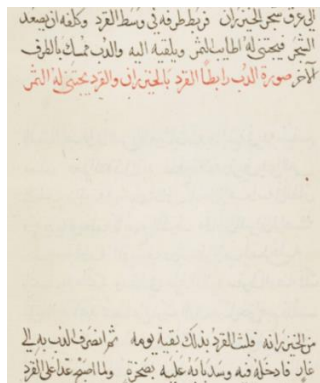 الي عرق شجر الخيزران فربط طرفه في وسط القرد وكلفه ان يصعد
الشجر فيجتني له اطايب الثمر ويلقيه اليه والدب ممسك بالطرف
الآخر صورة الدب رابطاً القرد بالخيزران والقرد يجتني له الثمر
من الخيزرانه فلبث القرد بذلك بقية يومه ثم انصرف الدب به الي
غار فادخله فيه وسد بابه عليه بصخرة ولما اصبح غدا علي القرد